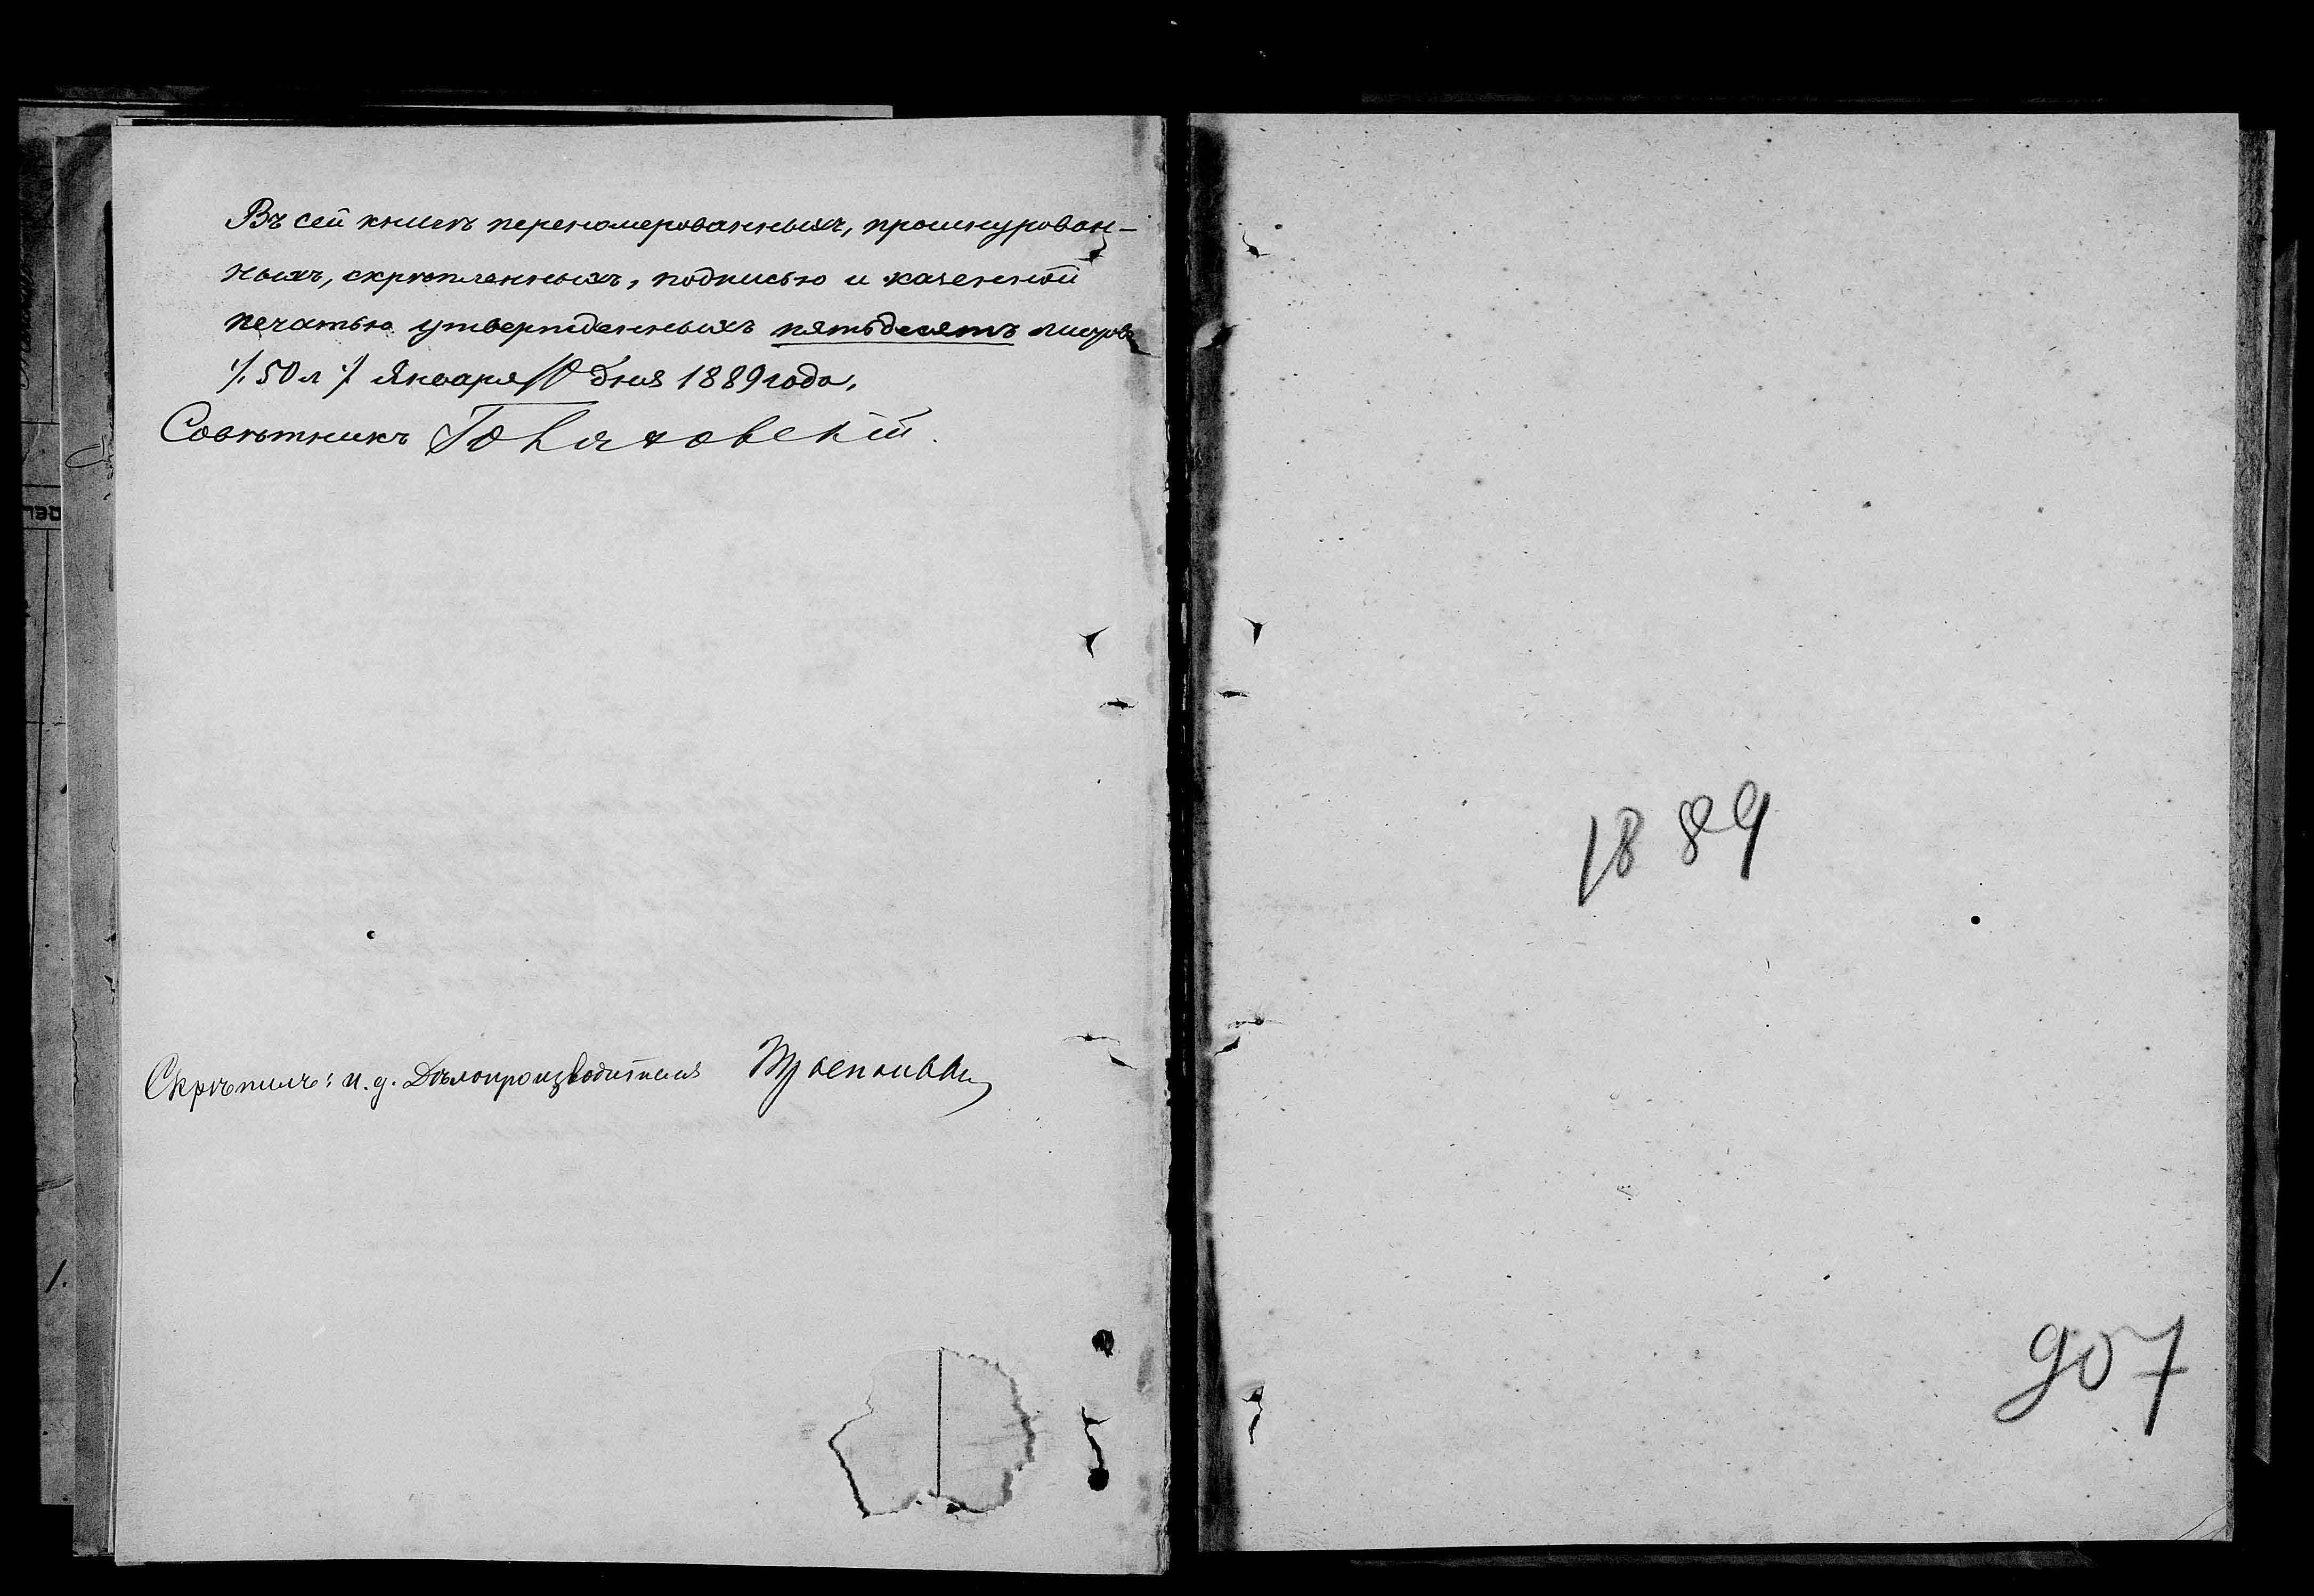 Въ сей книгѣ переномерованныхъ, прошнурован-
ныхъ, скрѣпленныхъ, подписью и казенной
печатью утвержденныхъ пятьдесятъ листовъ
./. 50 л ./. Января дня 1889 года,
Совѣтникъ
Скрѣпилъ: и. д. Дѣлопроизводителя
1889
907